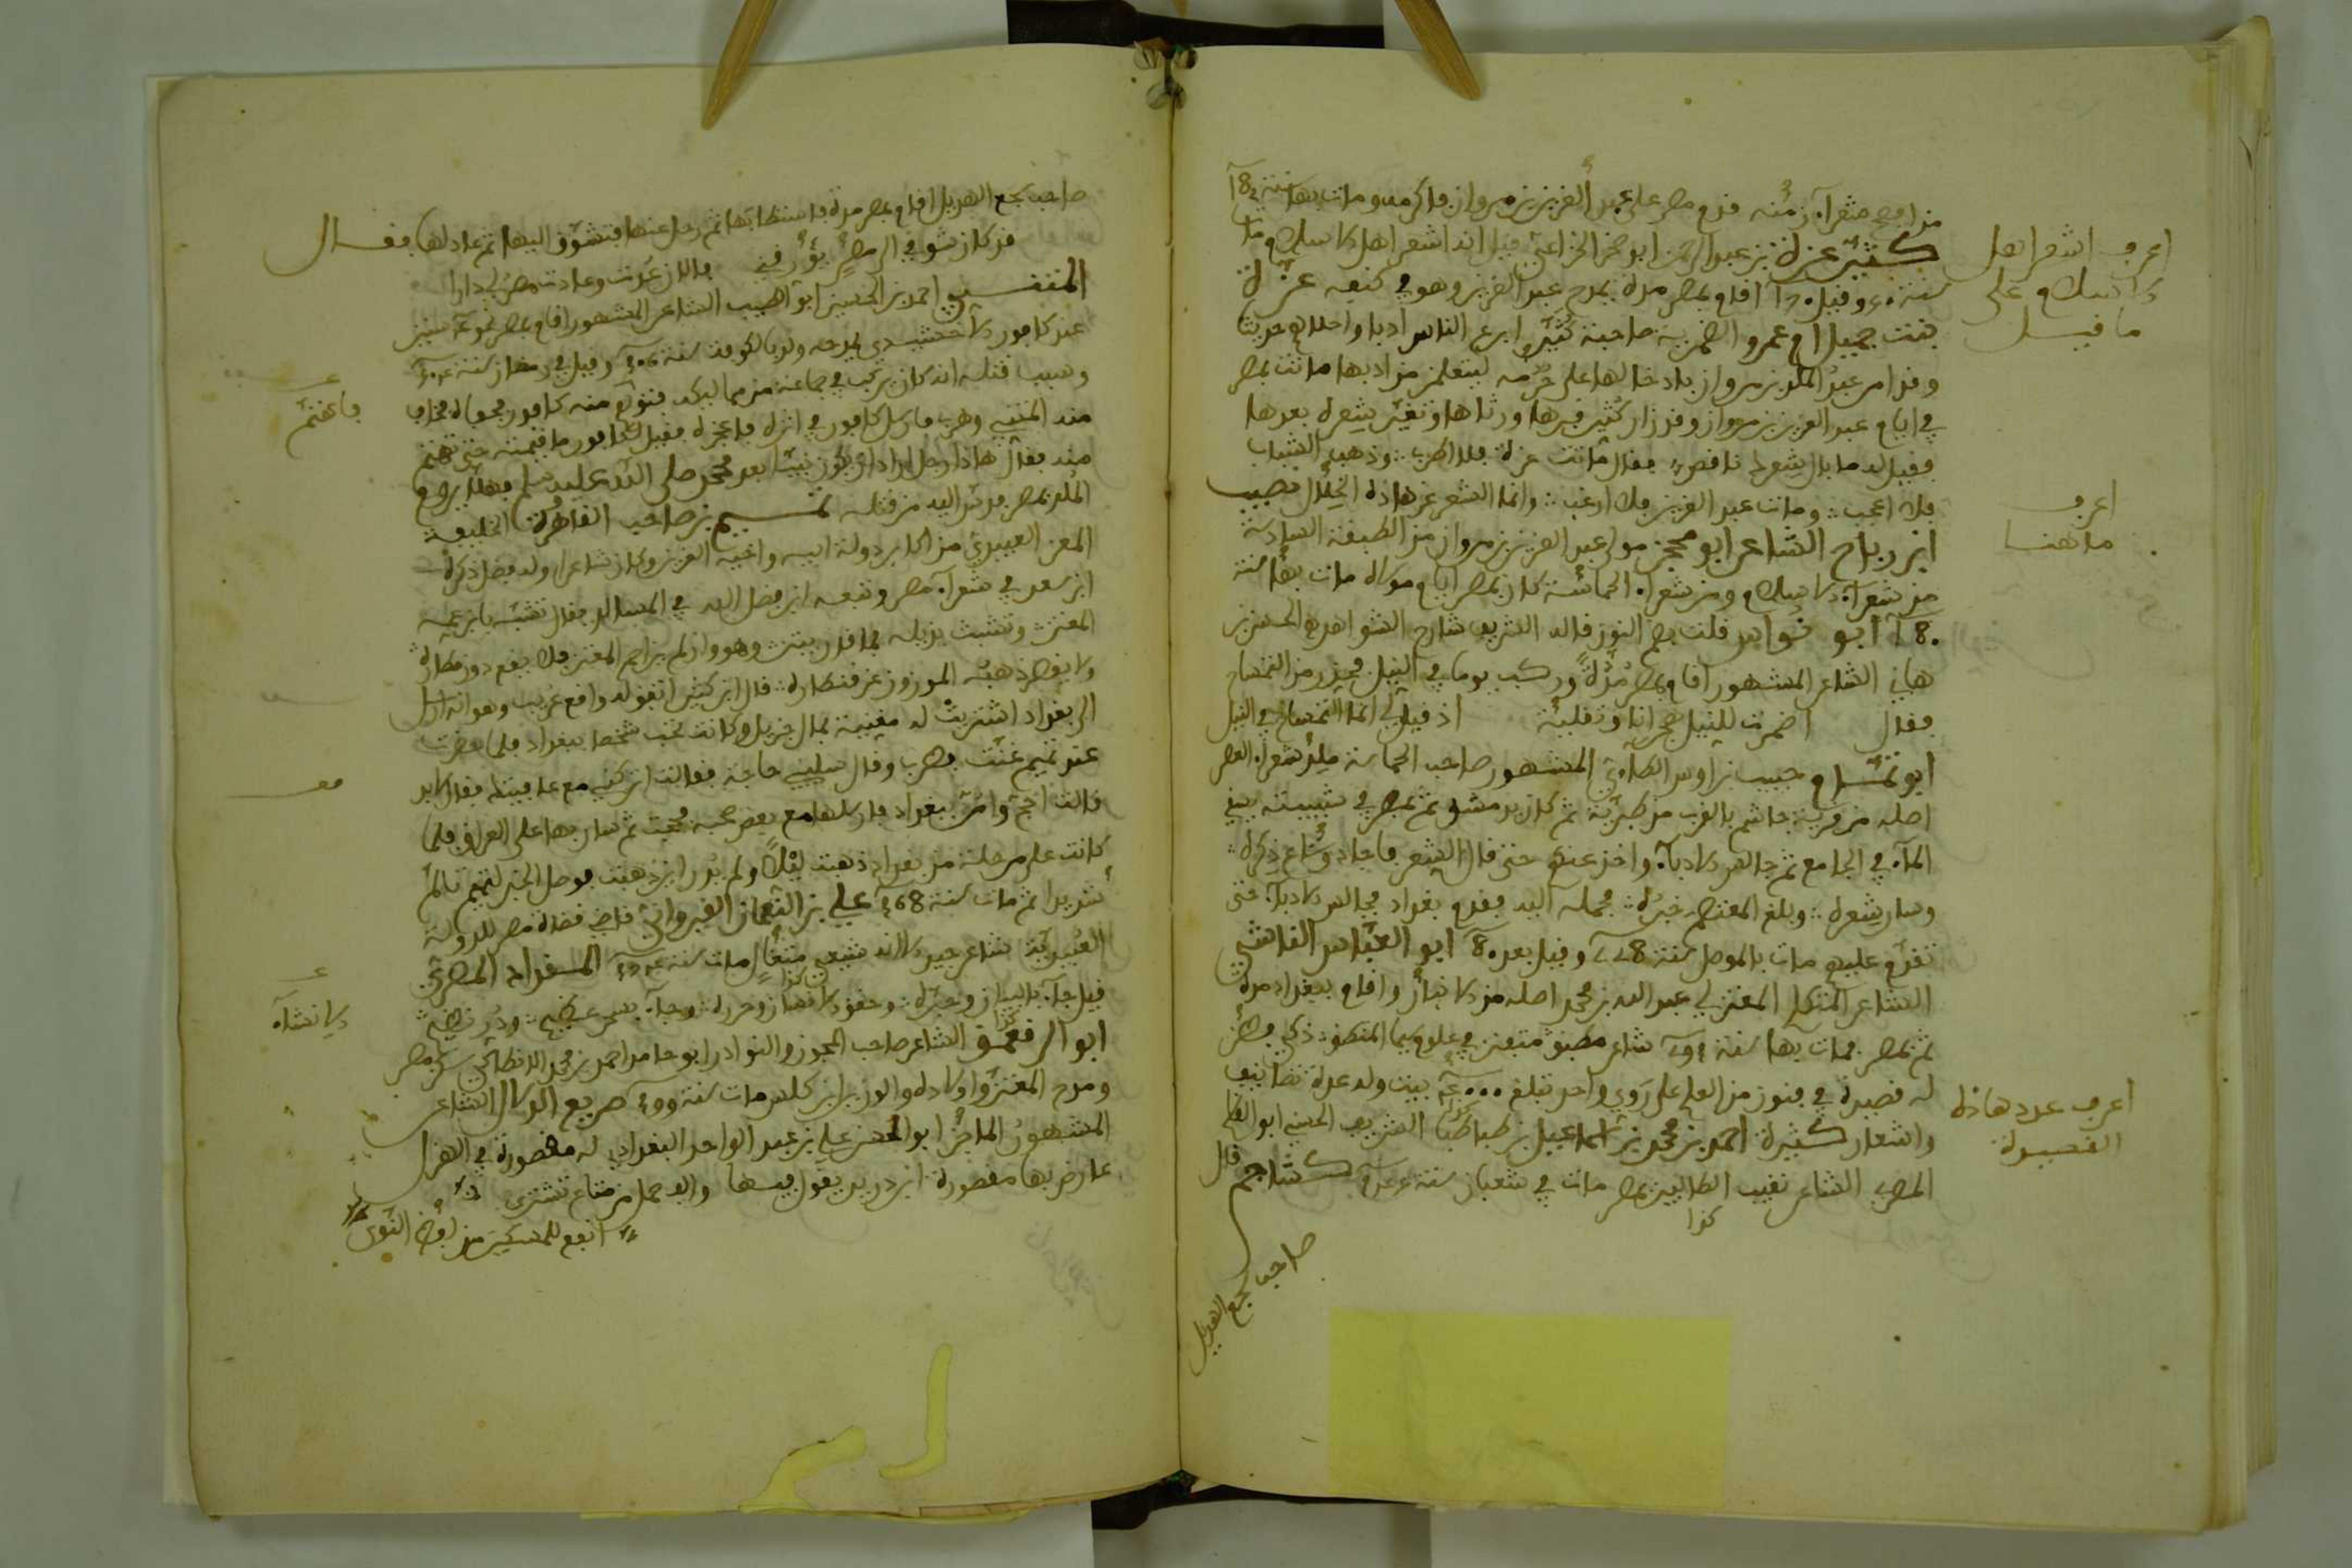 من افصح شعرآء زمنه قدم مصر على عبد العزيز بن مروان فاكرمه ومات بها سنة 82
كثير عزة بن عبد الرحمن ابو صخر الخزاعي قيل انه اشعر اهل الاسلام مات
اقام بمصر مدة يمدح عبد العزيز وهو في كنفه عزة
بنت جميل ام عمرو الضمرية صاحبة كثير ابرع الناس ادبا واحلاهم حديثا
وقد امر عبد الملك بن مروان بادخالها على حرمه ليتعلمن من ادبها ماتت بمصر
في ايام عبد العزيز بن مروان وقد زار كثير قبرها ورثاها وتغير شعره بعدها
فقيل له ما بال شعرك ناقص فقال ماتت عزة فلا اطرب وذهب الشباب
فلا اعجب ومات عبد العزيز فلا ارغب وانما الشعر عن هاذه الخلال نصيب
ابن رباح الشاعر ابو محجن مولى عبد العزيز بن مروان من الطبقة السادسة
من شعرآء الاسلام ومن شعرآء الحماسة كان بمصر ايام مولاه مات بها سنة
180 ابو نواس قلت بضم النون قاله الشريف شارح الشواهد الحسن بن
هاني الشاعر المشهور اقام بمصر مدة وركب يوما في النيل فحذر من التمساح
فقال اضمرت للنيل هجرانا وتقلية اذ قيل لي انما التمساح في النيل
ابو تمام حبيب بن اوس الطاءي المشهور صاحب الحماسة ملك شعرآء العصر
اصله من قرية جاسم بالقرب من طبرية ثم كان بدمشق ثم بمصر في شبيبته يسقي
المآء في الجامع ثم جالس الادبآء واخذ عنهم حتى قال الشعر فاجاد وشاع ذكره
وسار شعره وبلغ المعتصم خبره فحمله اليه فقدم بغداد فجالس الادبآء حتى
تقدم عليهم مات بالموصل سنة 228 وقيل بعد 80 ابو العباس الناشي
الشاعر المتكلم المعتزلي عبد الله بن محمد اصله من الانبار واقام ببغداد مدة
ثم بمصر فمات بها سنة 293 شاعر مطبق متفنن في علوم سيما المنطق ذكي فطن
له قصيدة في فنون من العلم على روي واحد تبلغ بيت وله عدة تصانيف
واشعار كثيرة احمد بن محمد بن اسماعيل بن طباطبا الشريف الحسني ابو القاسم
المصري الشاعر نقيب الطالبيين بمصر مات في شعبان سنة كشاجم قال
كذا
صاحب سجع الهديل
اعرف اشعر اهل
الاسلام على
ما قيل
اعرف
ما هنا
اعرف عدد هاذه
القصيدة
صاحب سجع الهديل اقام بمصر مدة فاستطابها ثم رحل عنها فتشوق اليها ثم عاد لها فقال
قد كان شوقي الى مصر يؤرقني فالان عدت وعادت مصر لي دارا
المتنبي احمد بن الحسين ابو الطيب الشاعر المشهور اقام بمصر نحو سنين
عند كافور الاخشيدي يمدحه ولد بالكوفة سنة 306 وقيل في رمضان سنة
وسبب قتله انه كان يركب في جماعة من مماليكه فتوهم منه كافور فجفاه فخاف
منه المتنبي وهرب فارسل كافور في اثره فاعجزه فقيل لكافور ما قيمته حتى تهتم
منه فقال هاذا رجل اراد ان يكون نبيّا بعد محمد صلى الله عليه وسلم فهلا يروم
الملك بمصر فدس اليه من قتله تميم بن صاحب القاهرة الخليفة
المعز العبيدي من اكابر دولة ابيه واخيه العزيز وكان شاعرا وله فضل ذكره
ابن سعد في شعرآء مصر وتبعه ابن فضل الله في المسالك فقال تشبه بابن عمه
المعتز وتشبث بذيله فما قدر يبتز وهو وان لم يزاحم المعتز فلا يقع دون مطاره
ولا يقصر ذهبه الموزون عن قنطاره قال ابن كثير اتفق له واقع غريب وهو انه ارسل
الى بغداد اشتريت له مغنية بمال جزيل وكانت تحب شخصا ببغداد فلما حضرت
عند تميم غنت فطرب وقال سليني حاجة فقالت ان كنت مع عافيتك فقال لابد
قالت احج وامر ببغداد فارسلها مع بعض صحبه فحجت ثم سار بها على العراق فلما
كانت على مرحلة من بغداد ذهبت ليلا ولم يدر اين ذهبت فوصل الخبر لتميم تالم
شديدا ثم مات سنة 368 علي بن النعمان القيرواني قاضي قضاة مصر للدولة
العبيدية شاعر جيد لاكنه شيعي متغال مات سنة المسفراد المصري
قيل جآء بالبيان وحبره وحقق الافهام وحرره وجآء بسحر عظيم ودر نظيم
ابو الرقعمق الشاعر صاحب المجون والنوادر ابو حامد احمد بن محمد الانطاكي سكن مصر
ومدح المعز واولاده والوزير ابن كلس مات سنة 399 صريع الدلاء الشاعر
المشهور الماجن ابو الحسن علي بن عبد الواحد البغدادي له مقصورة في الهزل
عارض بها مقصورة ابن دريد يقول فيها والف حمل من متاع تشتري
انفع للمسكين من لقط النوى
فاغتم
الانشآء